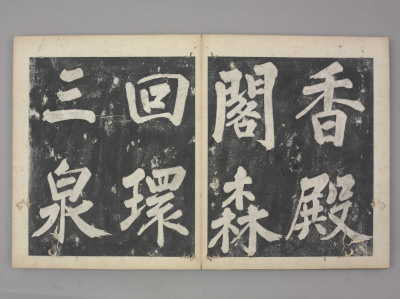 香殿
閣森
回環
三泉